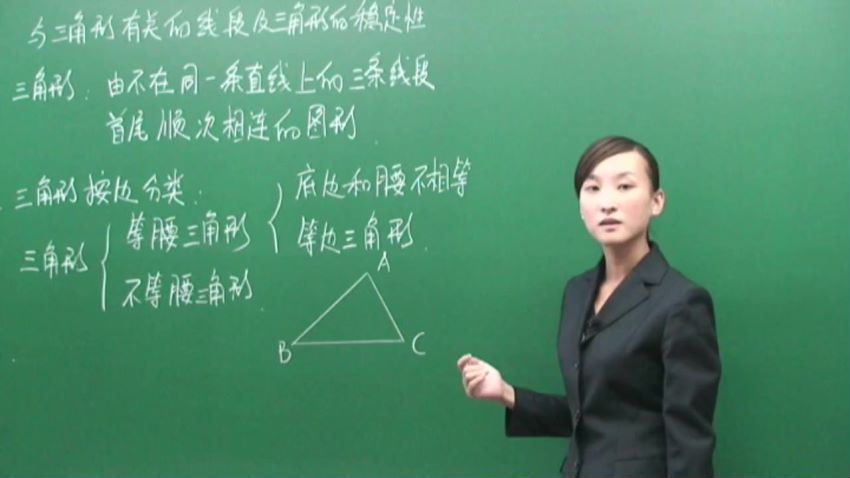 与三角形有关的线段及三角形的稳定性
三角形：由不在同一条直线上的三条线段
首尾顺次相连的图形.
三角形按边分类：
三角形
等腰三角形
不等腰三角形.
底边和腰不相等
等边三角形.
A
B
C